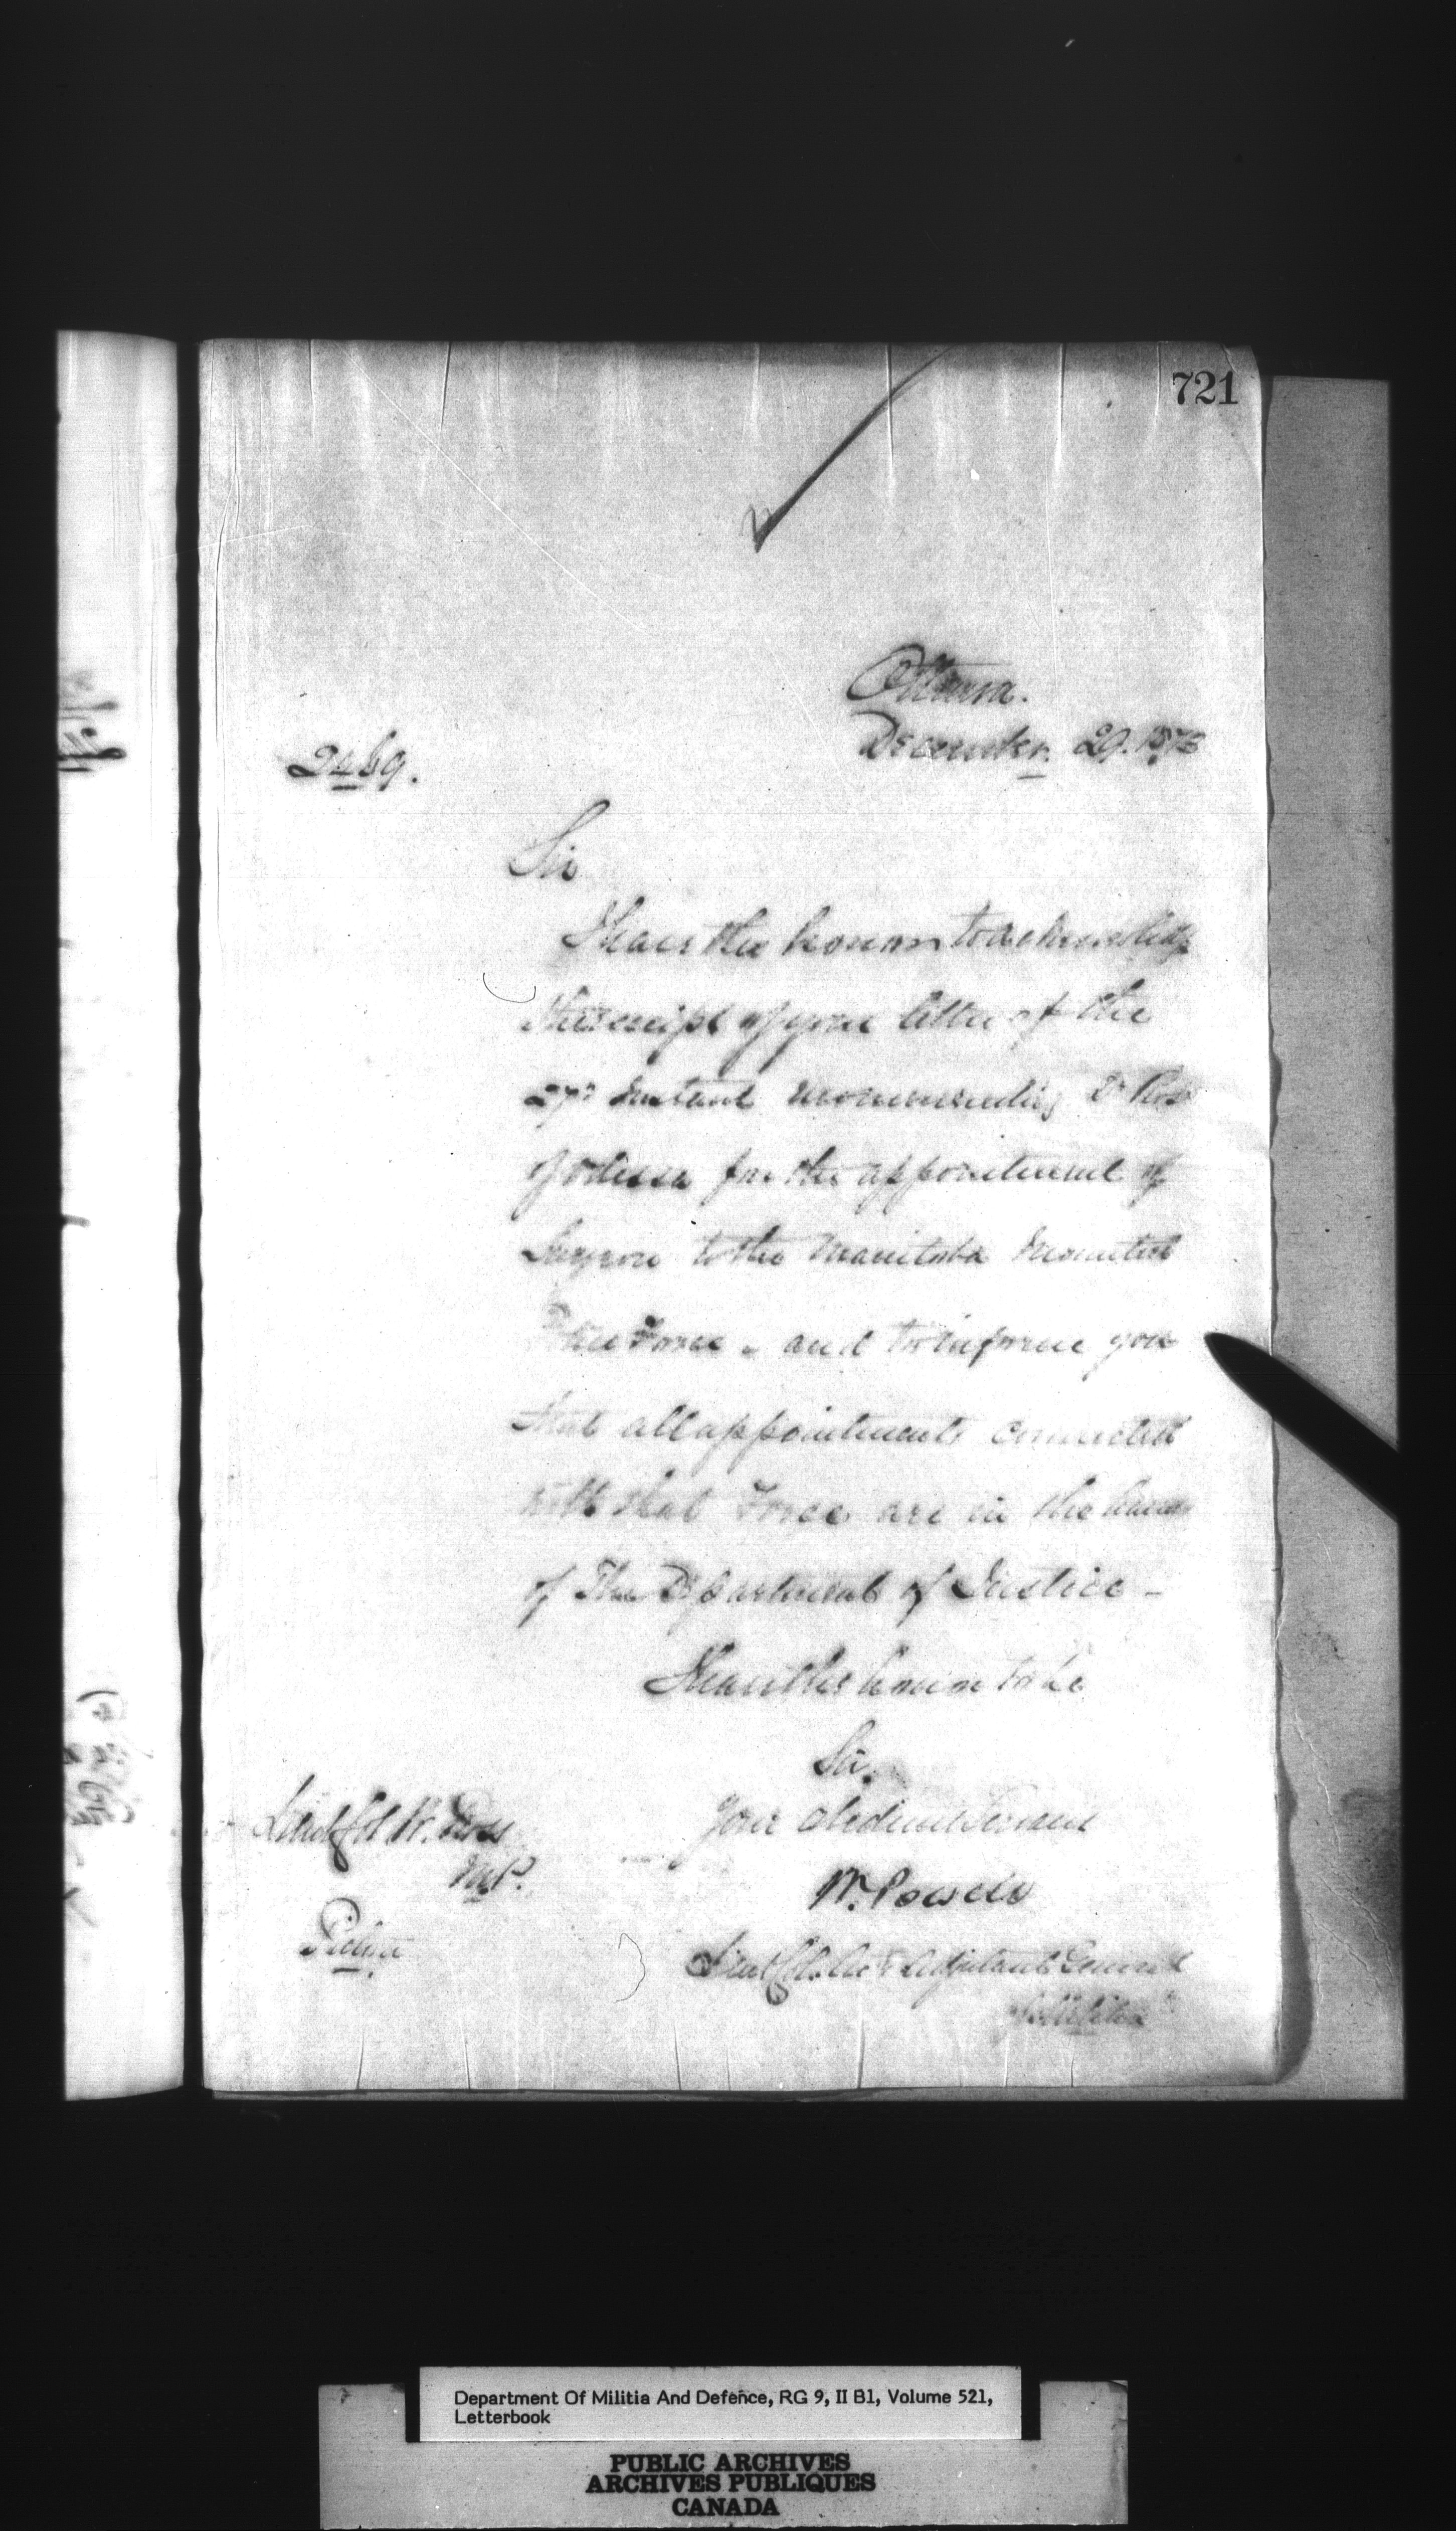 721
Ottawa.
December. 29. 1873
2469.
Sir
I have the honor to acknowledge
the receipt of your letter of the
27th Instant recommending Dr Ross
of Odessa for the appointment of
Surgeon to the Manitoba Mounted
Police Force - and to inform you
that all appointments connected
with that Force are in the hands
of The Department of Justice -
I have the honor to be
Sir.
Your obedient Servant
W. Powell
Lieut Col. Actg Adjutant General
of Militia
Lieut Col W. Ross
M.P.
Picton
Department Of Militia And Defence, RG 9, II B1, Volume 521,
Letterbook
PUBLIC ARCHIVES
ARCHIVES PUBLIQUES
CANADA